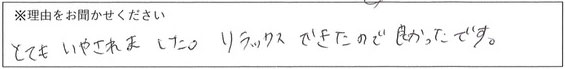 ※理由をお聞かせください
とても いやされました。 リラックス できたので 良かったです。